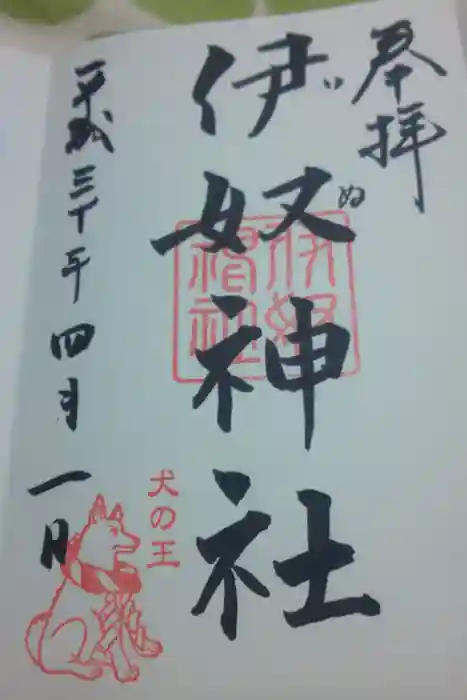 奉拝
伊奴神社
い
ぬ
伊奴神社
平成三十年四月一日
犬の王